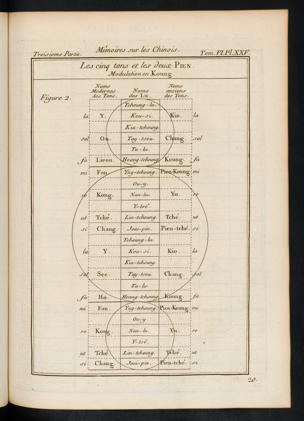 Troisieme Partie. Mémoires sur les Chinois. Tom. VI. Pl. XXV.
Les cinq tons et les deux PIEN.
Modulation en Koung.
Figure 2.
Noms Modernes des Tons. Noms des Lu. Noms anciens des Tons.
Tchoung-lu.
la Y. Kou-si. Kio. la
Kia-tchoung.
sol Ou. Tay-tsou. Chang. sol
Ta-lu.
fa Lieou. Hoang-tchoung. Koung. fa
mi Fan. Yng-tchoung. Pien-Koung. mi
Ou-y.
re Kong. Nan-lu. Yu. re
Y-tsé.
ut Tché. Lin-tchoung. Tché. ut
si Chang. Joui-pin. Pien-tché. si
Tchoung-lu.
la Y. Kou-si. Kio. la
Kia-tchoung.
sol See. Tay-tsou. Chang. sol
Ta-lu.
fa Ho. Hoang-tchoung. Koung. fa
mi Fan. Yng-tchoung. Pien-Koung. mi
Ou-y.
re Kong. Nan-lu. Yu. re
Y-tsé.
ut Tché. Lin-tchoung. Tché. ut
si Chang. Joui-pin. Pien-tché. si